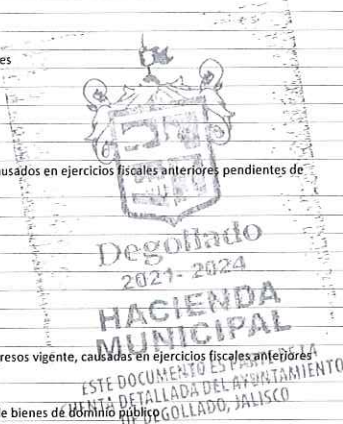 es
usados en ejercicios fiscales anteriores pendientes de
Degollado
2021-2024
HACIENDA
MUNICIPAL
resos vigente, causadas en ejercicios fiscales anteriores
ESTE DOCUMENTO ES PARTE DE LA
CUENTA DETALLADA DEL AYUNTAMIENTO
e bienes de dominio público
DE DEGOLLADO, JALISCO